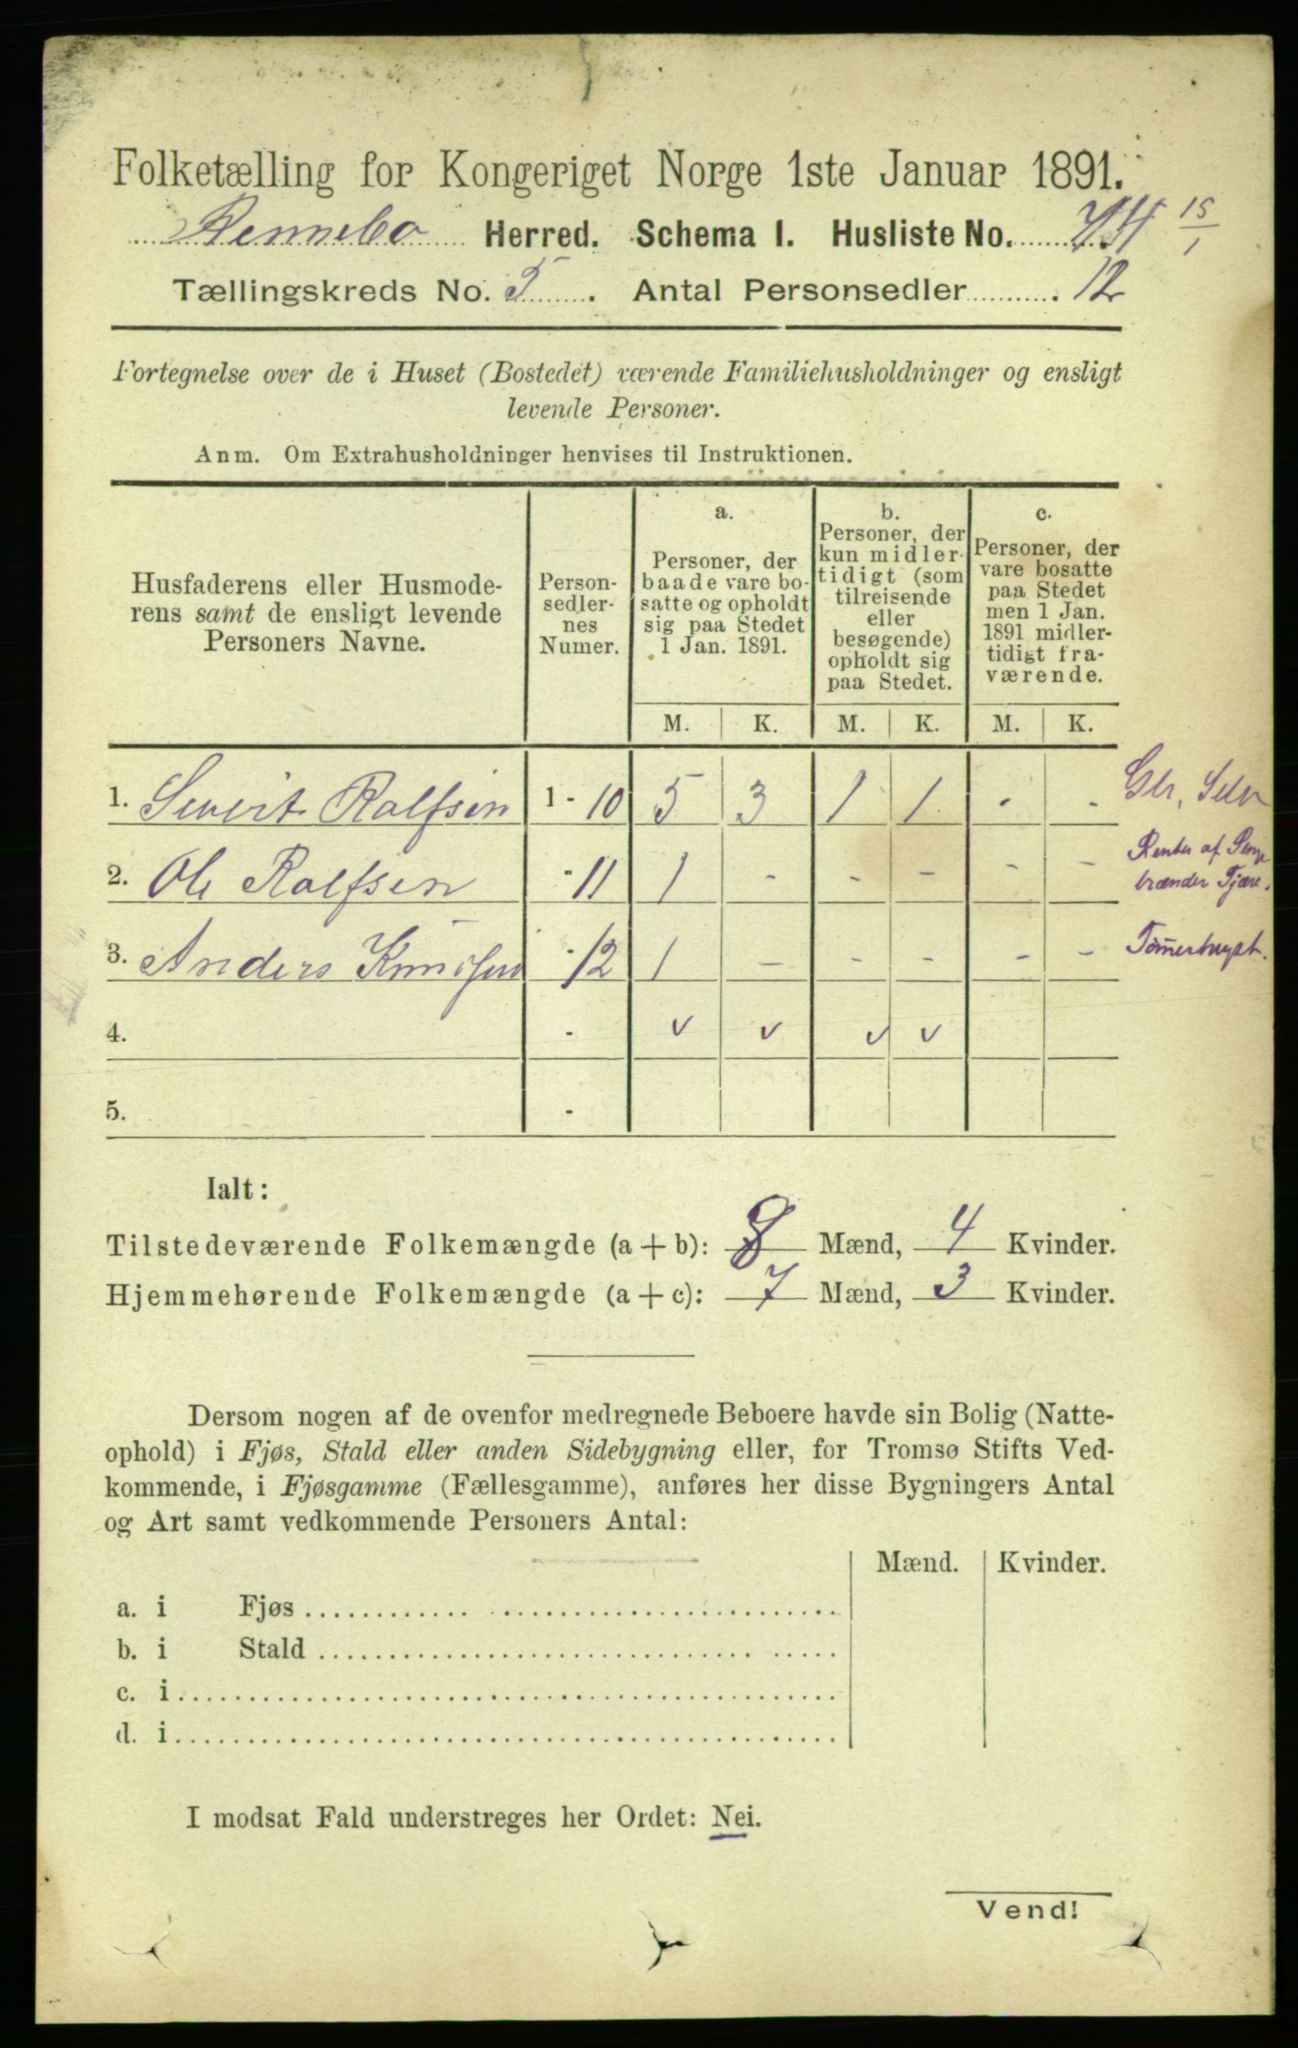 Folketælling for Kongeriget Norge 1ste Januar 1891.
Rennebo Herred. Schema I. Husliste No. 15/1
Tællingskreds No. 5. Antal Personsedler 12
Fortegnelse over de i Huset (Bostedet) værende Familiehusholdninger og ensligt
levende Personer.
Anm. Om Extrahusholdninger henvises til Instruktionen.
Husfaderens eller Husmode-
rens samt de ensligt levende
Personers Navne.
Person-
sedler-
nes
Numer.
a.
Personer, der
baade vare bo-
satte og opholdt
sig paa Stedet
1 Jan. 1891.
b.
Personer, der
kun midler-
tidigt (som
tilreisende
eller
besøgende)
opholdt sig
paa Stedet.
c.
Personer, der
vare bosatte
paa Stedet
men 1 Jan.
1891 midler-
tidigt fra-
værende.
M. K. M. K. M. K.
1. Sivert Rolfsen 1 - 10 5 3 1 1 - - Gbr, Selv
2. Ole Rolfsen - 11 1 - - - - - Renter af Penge
brænder Tjære.
3. Anders Knudsen - 12 1 - - - - - Tømerhugst.
4. - v v v v
5. -
Ialt:
Tilstedeværende Folkemængde (a + b): 8 Mænd, 4 Kvinder.
Hjemmehørende Folkemængde (a + c): 7 Mænd, 3 Kvinder.
Dersom nogen af de ovenfor medregnede Beboere havde sin Bolig (Natte-
ophold) i Fjøs, Stald eller anden Sidebygning eller, for Tromsø Stifts Ved-
kommende, i Fjøsgamme (Fællesgamme), anføres her disse Bygningers Antal
og Art samt vedkommende Personers Antal:
Mænd. Kvinder.
a. i Fjøs
b. i Stald
c. i
d. i
I modsat Fald understreges her Ordet: Nei.
Vend!